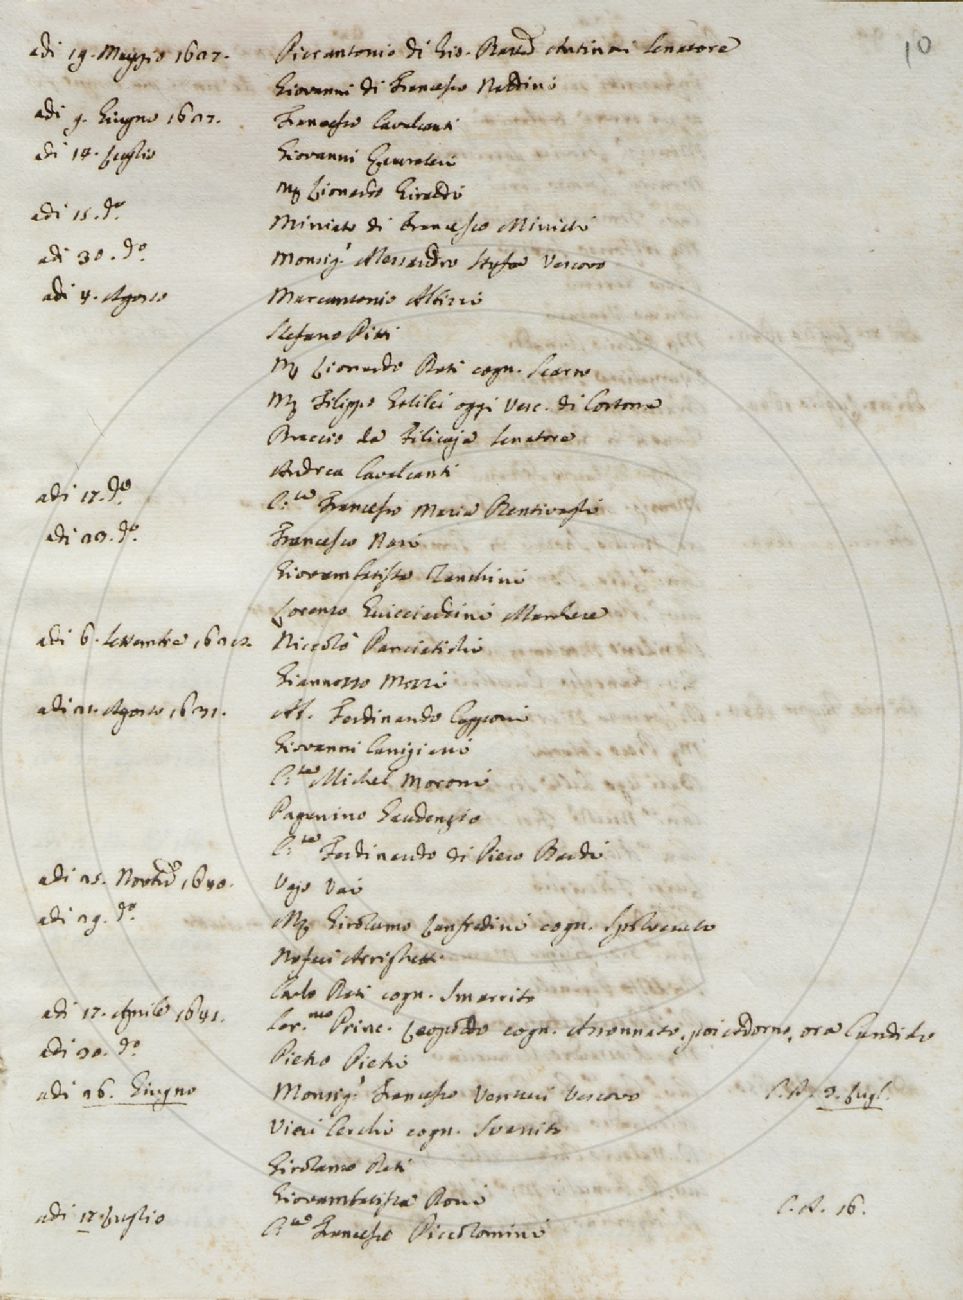 10
adi 19. Maggio 1627. Pierantonio di Gio. Bared Antinori Senatore
Giovanni di Francesco Naldini
adi 9. Giugno 1627. Francesco Cavalcanti
adi 14. Luglio Giovanni
Mr Lionardo Giraldi
adi 15. do. Miniato di Francesco Miniati
adi 30. do. Monsigr Alessandro Strozi Vescovo
adi 4. Agosto Marcantonio Albizi
Stefano Pitti
Mr Lionardo Dati cogn. Scarso
Mr Filippo Galilei oggi Vesc. di Cortona
Braccio da Filicaja Senatore
Andrea Cavalcanti
adi 17. do. Cte Francesco Maria Bentivogli
adi 23. do. Francesco Nasi
Giovambatista Zanchini
Lorenzo Guicciardini Marchese
adi 6. Settembre Niccolò Panciatichi
Giannozzo Mozzi
adi 21. Agosto 1631. Ab. Ferdinando Capponi
Giovanni Canigiani
Cte Michel Moroni
Paganino Gaudenzio
Cte Ferdinando di Piero Bardi
adi 25. Novbre 1640. Vajo Vai
adi 29. do. Mr Girolamo Lanfredini cogn. Spolverato
Nofrii
Carlo Dati cogn. Smarrito
adi 17. Aprile 1641. Ser.mo Princ. Leopoldo cogn. Assonnato, poi adorno, ora Candido
adi 30. do. Pietro Pieri
adi 26. Giugno Monsigr Francesco Venturi Vescovo C. A. 3. Lugl.
Vieri Cerchi cogn. Svanito
Girolamo Dati
Giovambatista Doni C. A. 16.
adi 17. Luglio Cte Francesco Piccolomini